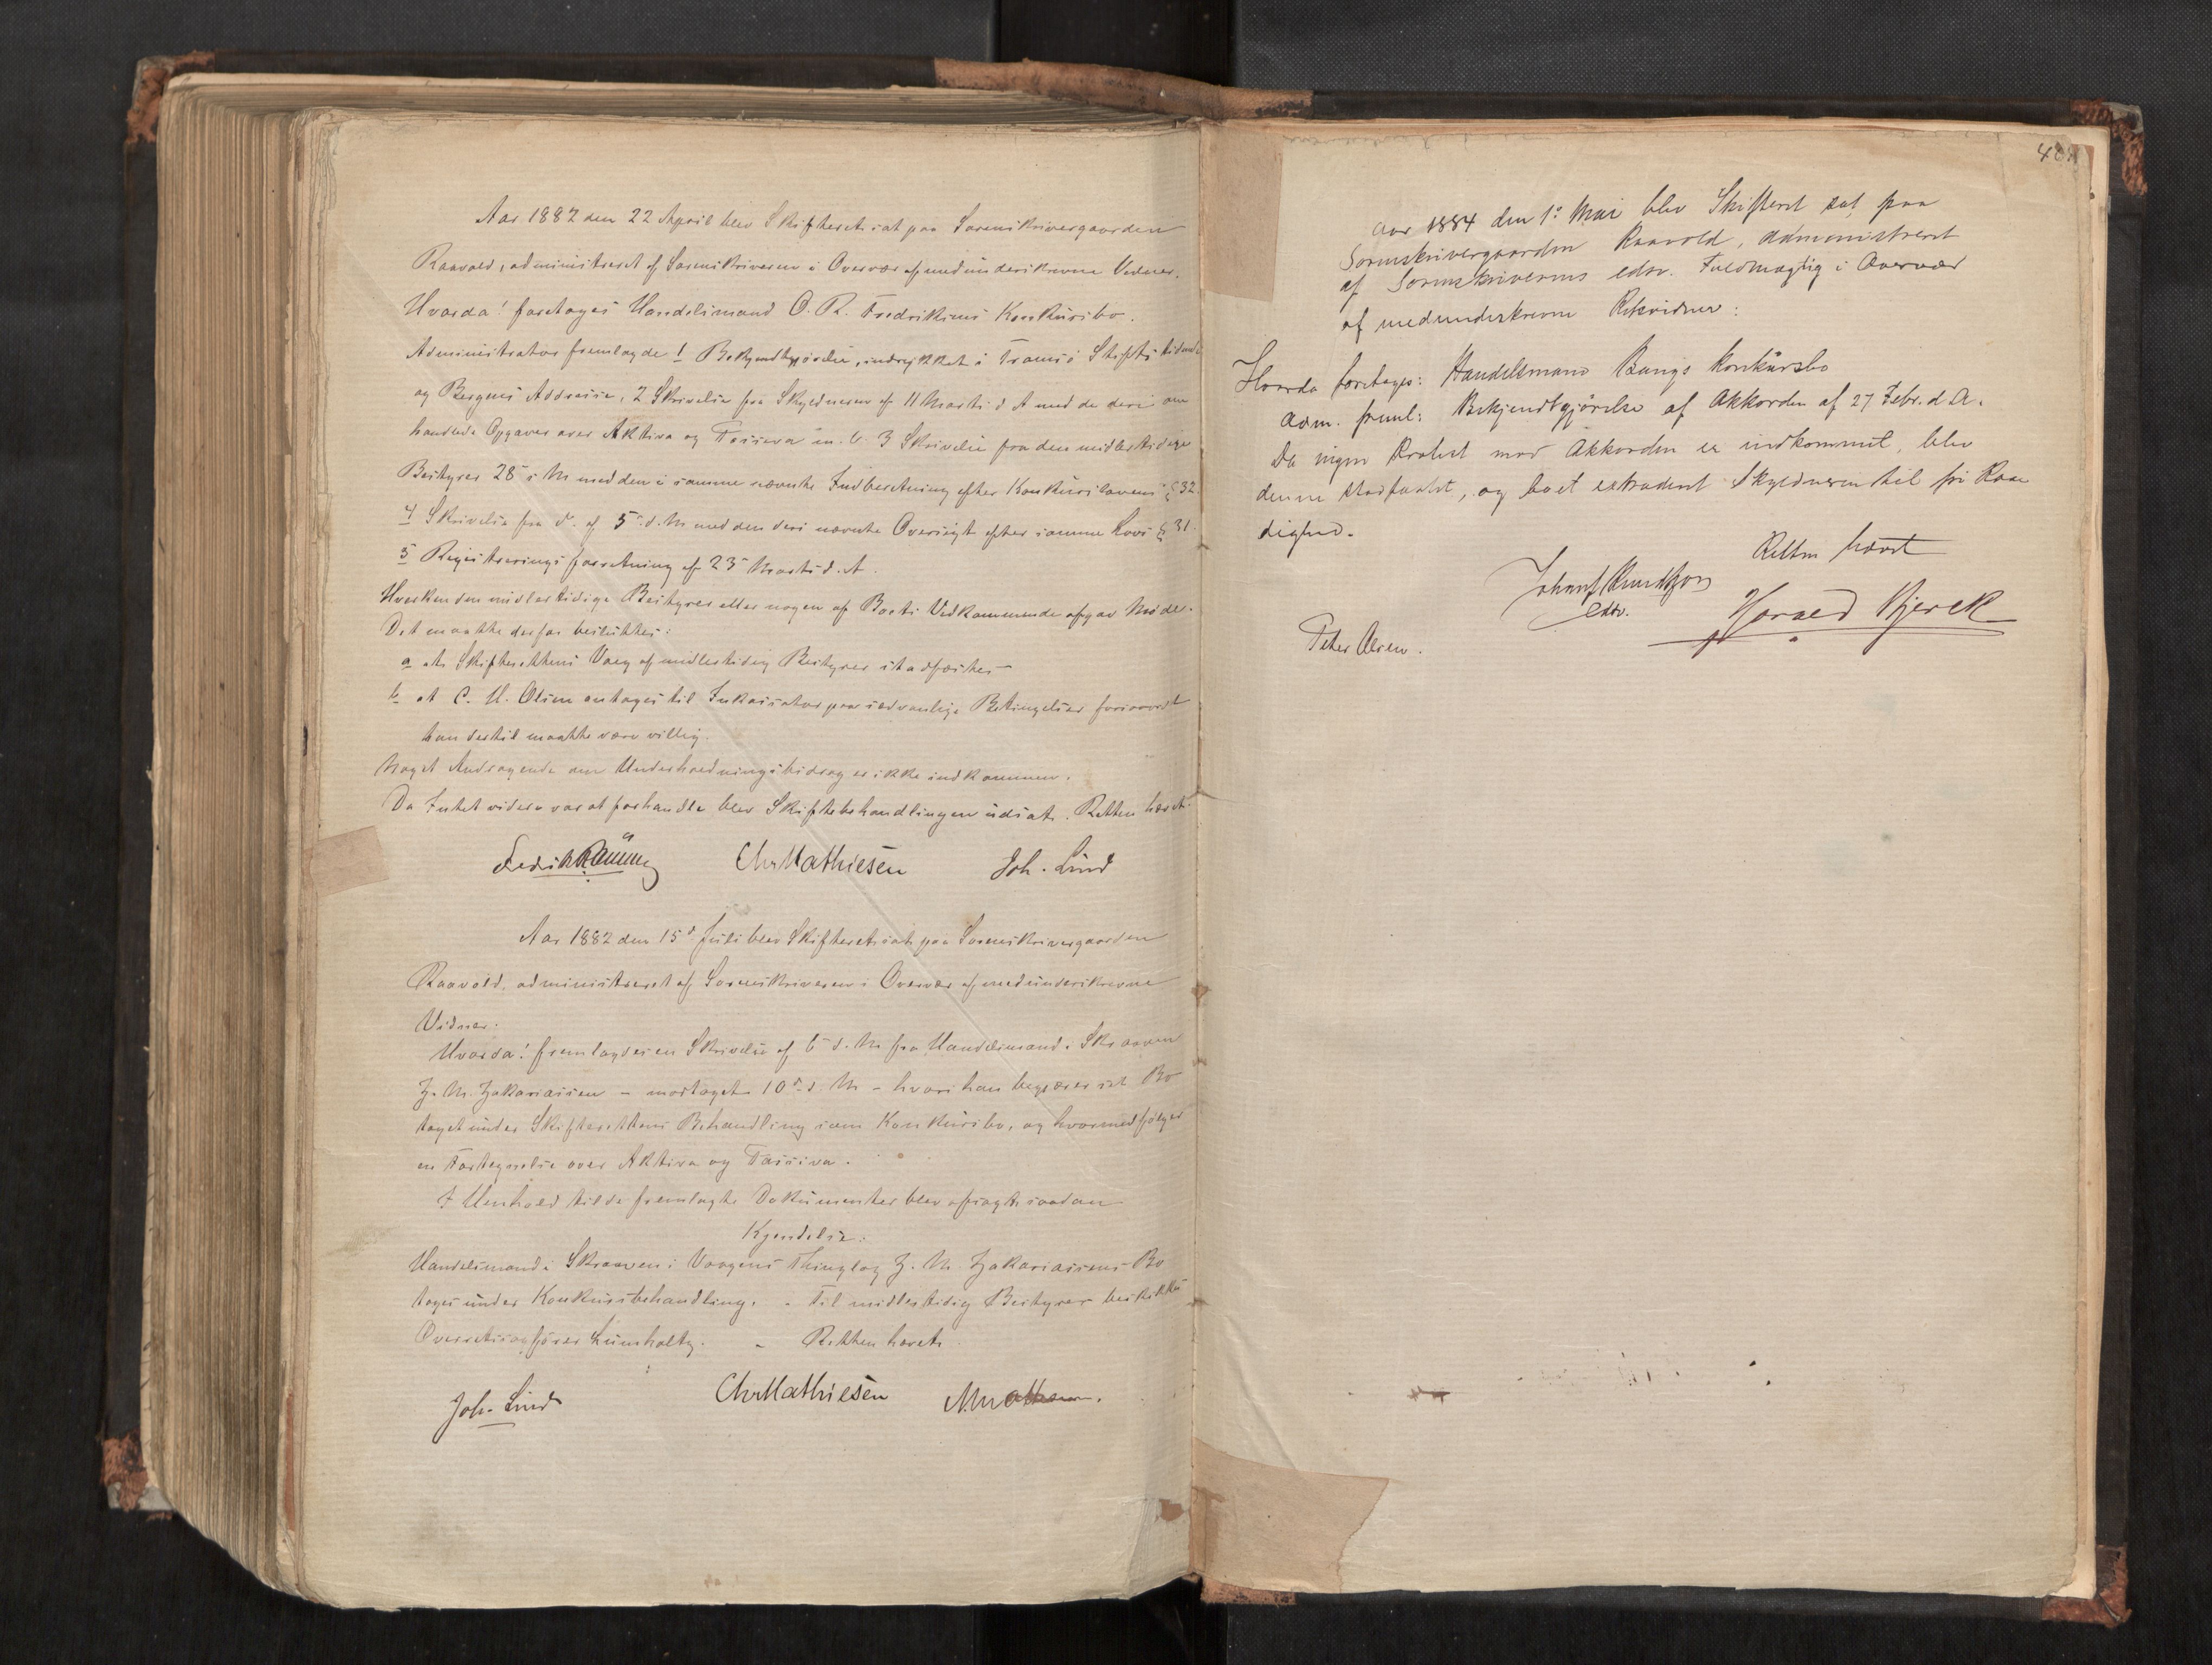 Aar 1882 den 22 April blev Skifteret sat paa Sorenskrivergaarden
Raavold, administreret af Sorenskriveren i Overvær af medunderskrevne Vidner.
Hvorda! foretoges Handelsmand O. R. Fredriksens Konkursbo.
Administrator fremlagde 1 Bekjendtgjørelse, indrykket i Tromsö Stiftstidende
og Bergens Addresse, 2 Skrivelse fra Skyldneren af 11 Marts d A med de deri om
handlede Opgaver over Aktiva og Passiva m. v. 3 Skrivelse fra den midlertidige
Bestyrer 28 s M med den i samme nævnte Indberetning efter Konkurslovens § 32.
4 Skrivelse fra do. af 5 d. M med den deri nævnte Oversigt efter samme Lovs § 31.
5 Registreringsforretning af 23 Marts d. A.
Hverken den midlertidige Bestyrer eller nogen af Boets Vedkommende afgav Møde.
Det maatte derfor besluttes:
a at Skifterettens Valg af midlertidig Bestyrer stadfæstes
b at C. H. Olsen antages til Inkassator paa sædvanlige Betingelser forsaavidt
han dertil maatte være villig.
Noget Andragende om Underholdningsbidrag er ikke indkommen.
Da Intet videre var at forhandle blev Skiftebehandlingen udsat. Retten hævet.
Chr Mathiesen Joh. Lind
Aar 1882 den 15de Juli blev Skifteret sat paa Sorenskrivergaarden
Raavold, administreret af Sorenskriveren i Overvær af medunderskrevne
Vidner.
Hvorda! fremlagdes en Skrivelse af 6 d. M fra Handelsmand i Skraaven
Z. M. Zakariassen – modtaget 10de d. M – hvori han begjærer sit Bo
taget under Skifterettens Behandling som Konkursbo, og hvormed følger
en Fortegnelse over Aktiva og Passiva.
I Henhold til de fremlagte Dokumenter blev afsagt saadan
Kjendelse:
Handelsmand i Skraaven i Vaagens Thinglag Z. M. Zakariassens Bo
tages under Konkursbehandling. – Til midlertidig Bestyrer beskikkes
Overretssagfører Lumholtz. – Retten hævet
Joh. Lind Chr Mathiesen
Aar 1884 den 1ste Mai blev Skifteret sat paa
Sorenskrivergaarden Raavold, administreret
af Sorenskriverens edsv. Fuldmægtig i Overvær
af medunderskrevne Retsvidner:
Hvorda foretoges: Handelsmand Bangs Konkursbo
Adm. freml: Bekjendtgjörelse af Akkorden af 27 Febr. d. A.
Da ingen Protest mod Akkorden er indkommet, blev
denne stadfæstet, og boet extraderet Skyldneren til fri Raa
dighed.
Retten hævet
edsv. Harald Kjerck
Peter Olsen.